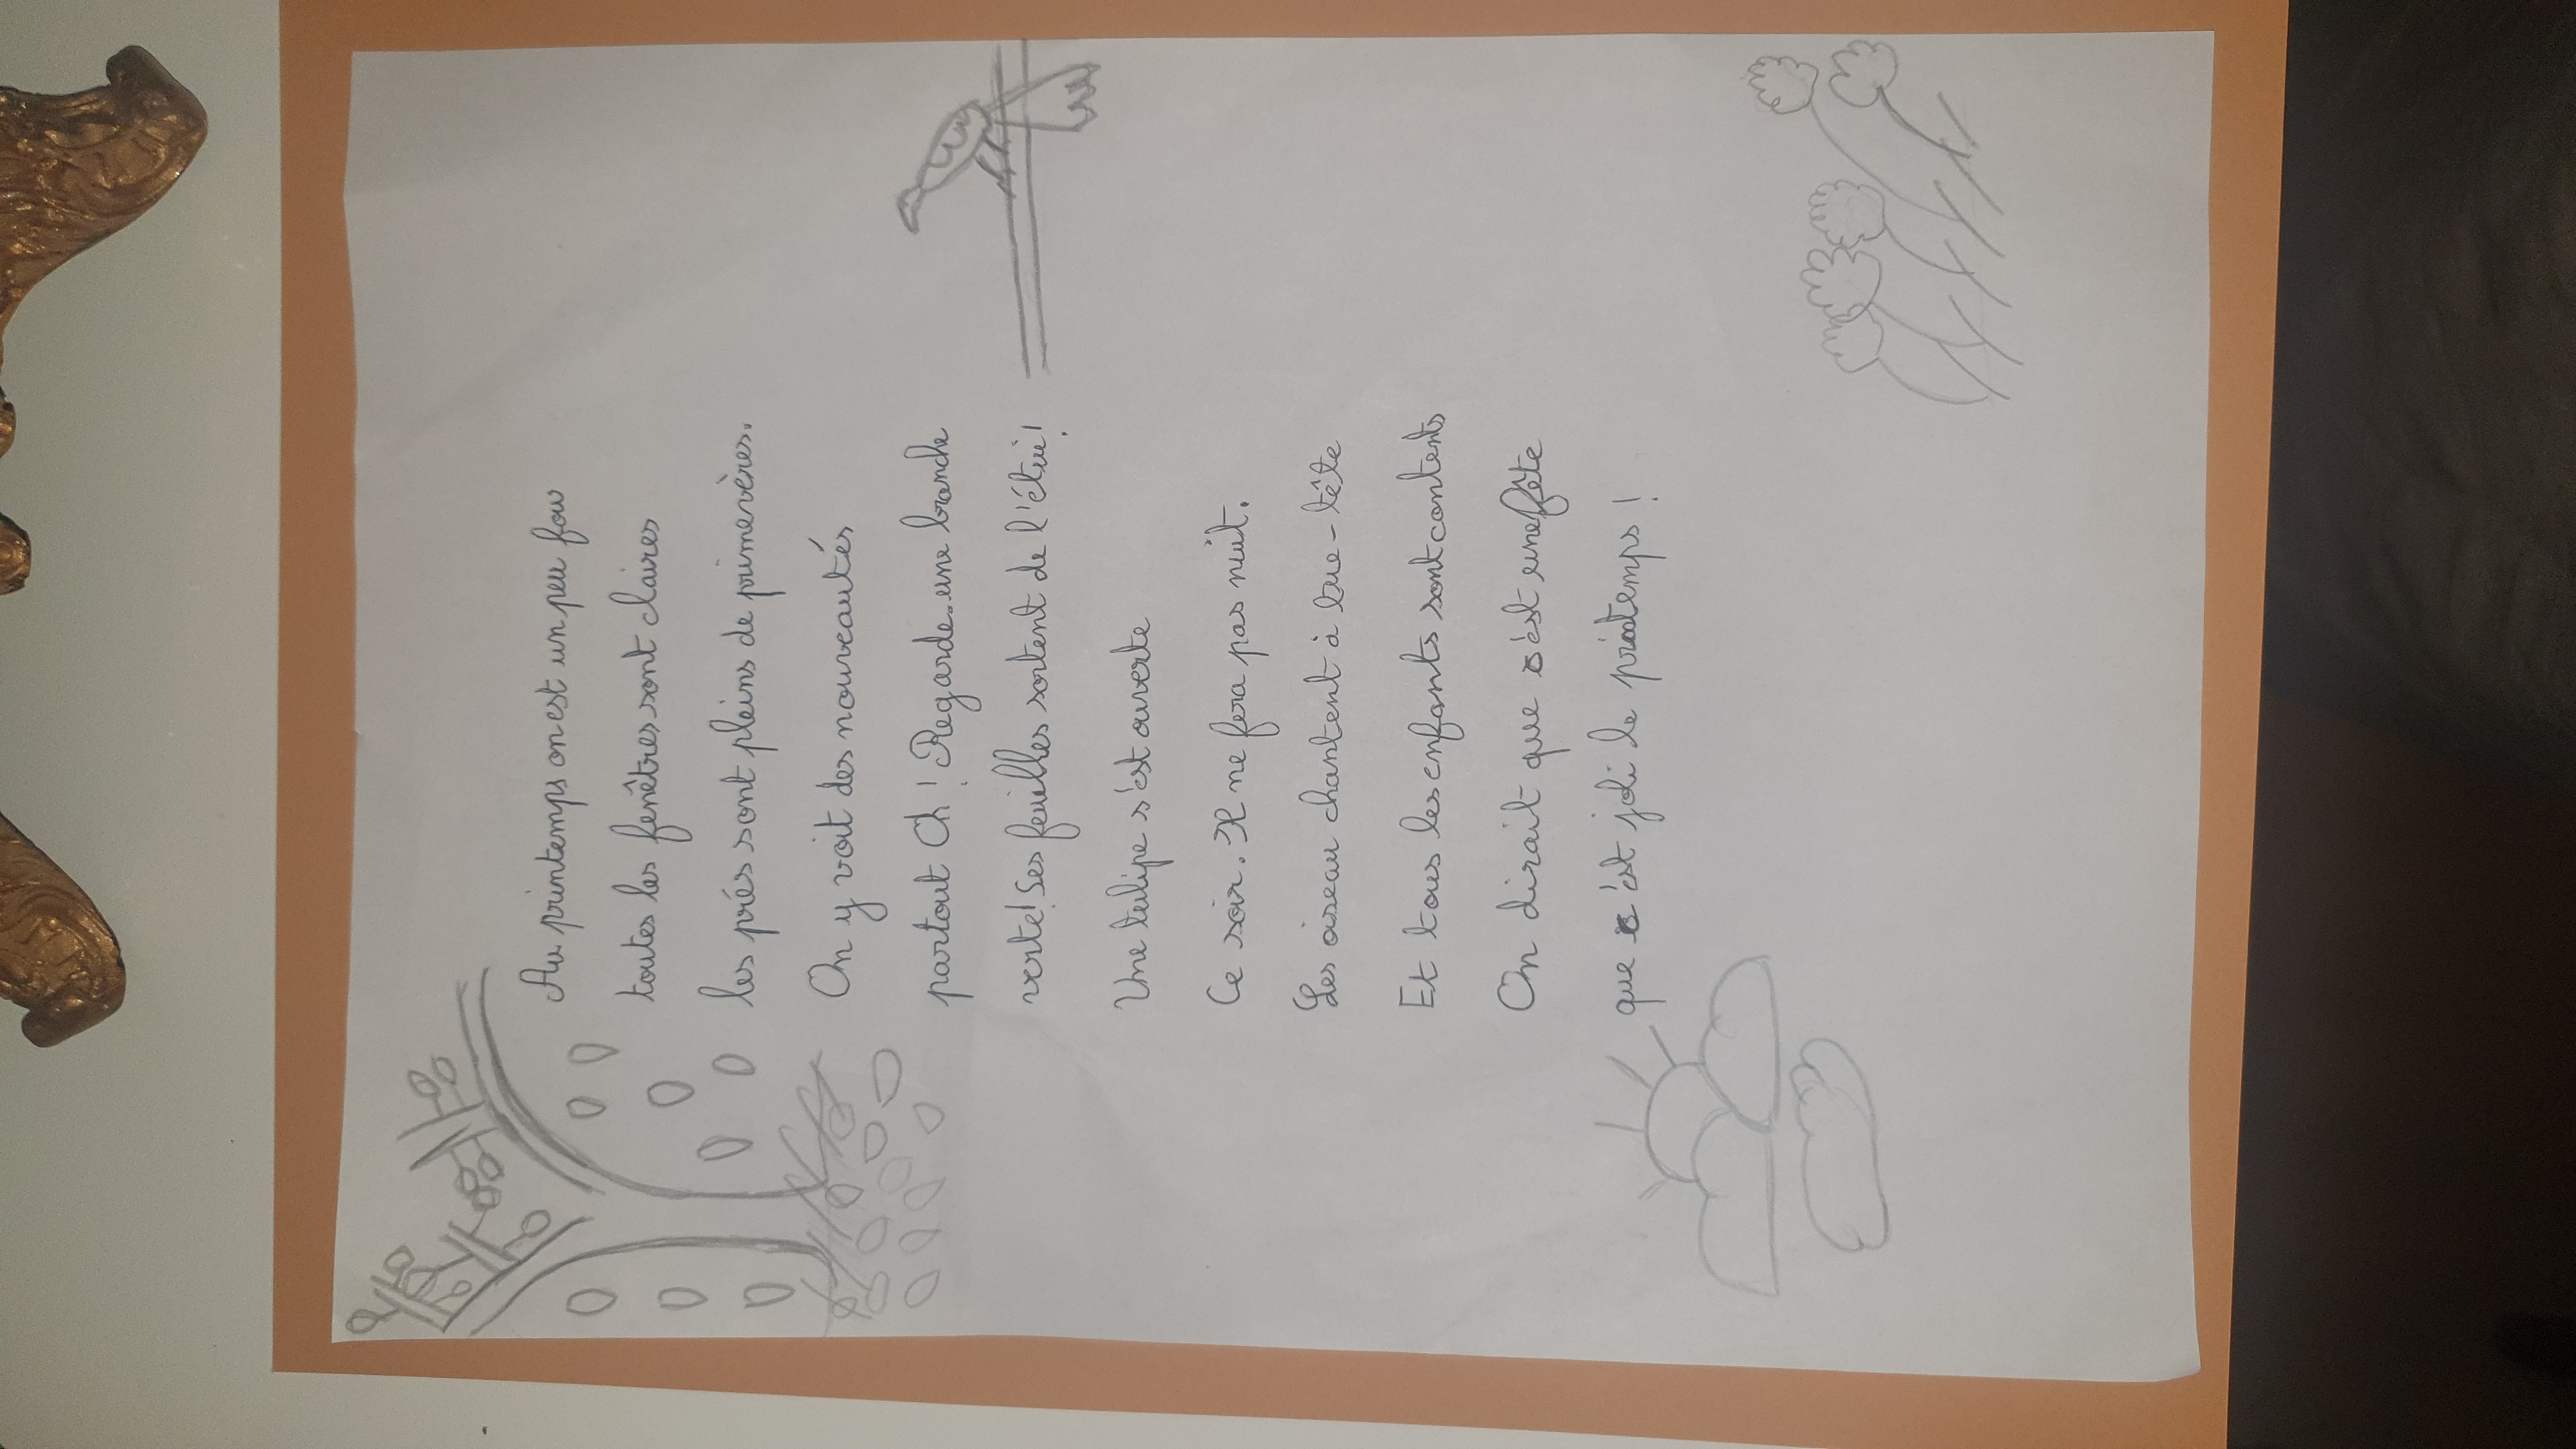 Au printemps on est un peu fou
toutes les fenêtres sont claires
les prés sont pleins de primevères.
On y voit des nouveautés
partout Oh ! Regarde une branche
verte ! Ses feuilles sortent de l'étui !
Une tulipe s'est ouverte
Ce soir. Il ne fera pas nuit.
Les oiseau chantent à tue-tête
Et tous les enfants sont contents
On dirait que c'est une fête
que c'est joli le printemps !